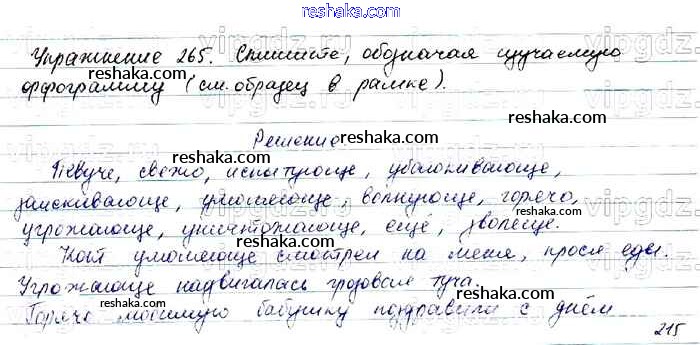 reshaka.com
Упражнение 265. Спишите, обозначая изучаемую
reshaka.com
орфограмму (см. образец в рамке).
reshaka.com
Решение:
reshaka.com
Певуче, свежо, испытующе, убаюкивающе,
reshaka.com
заискивающе, умоляюще, волнующе, горячо,
reshaka.com
угрожающе, уничтожающе, ещё, зловеще.
reshaka.com
Кот умоляюще смотрел на меня, прося еды.
reshaka.com
Угрожающе надвигалась грозовая туча.
reshaka.com
Горячо любимую бабушку поздравили с днём
reshaka.com
215